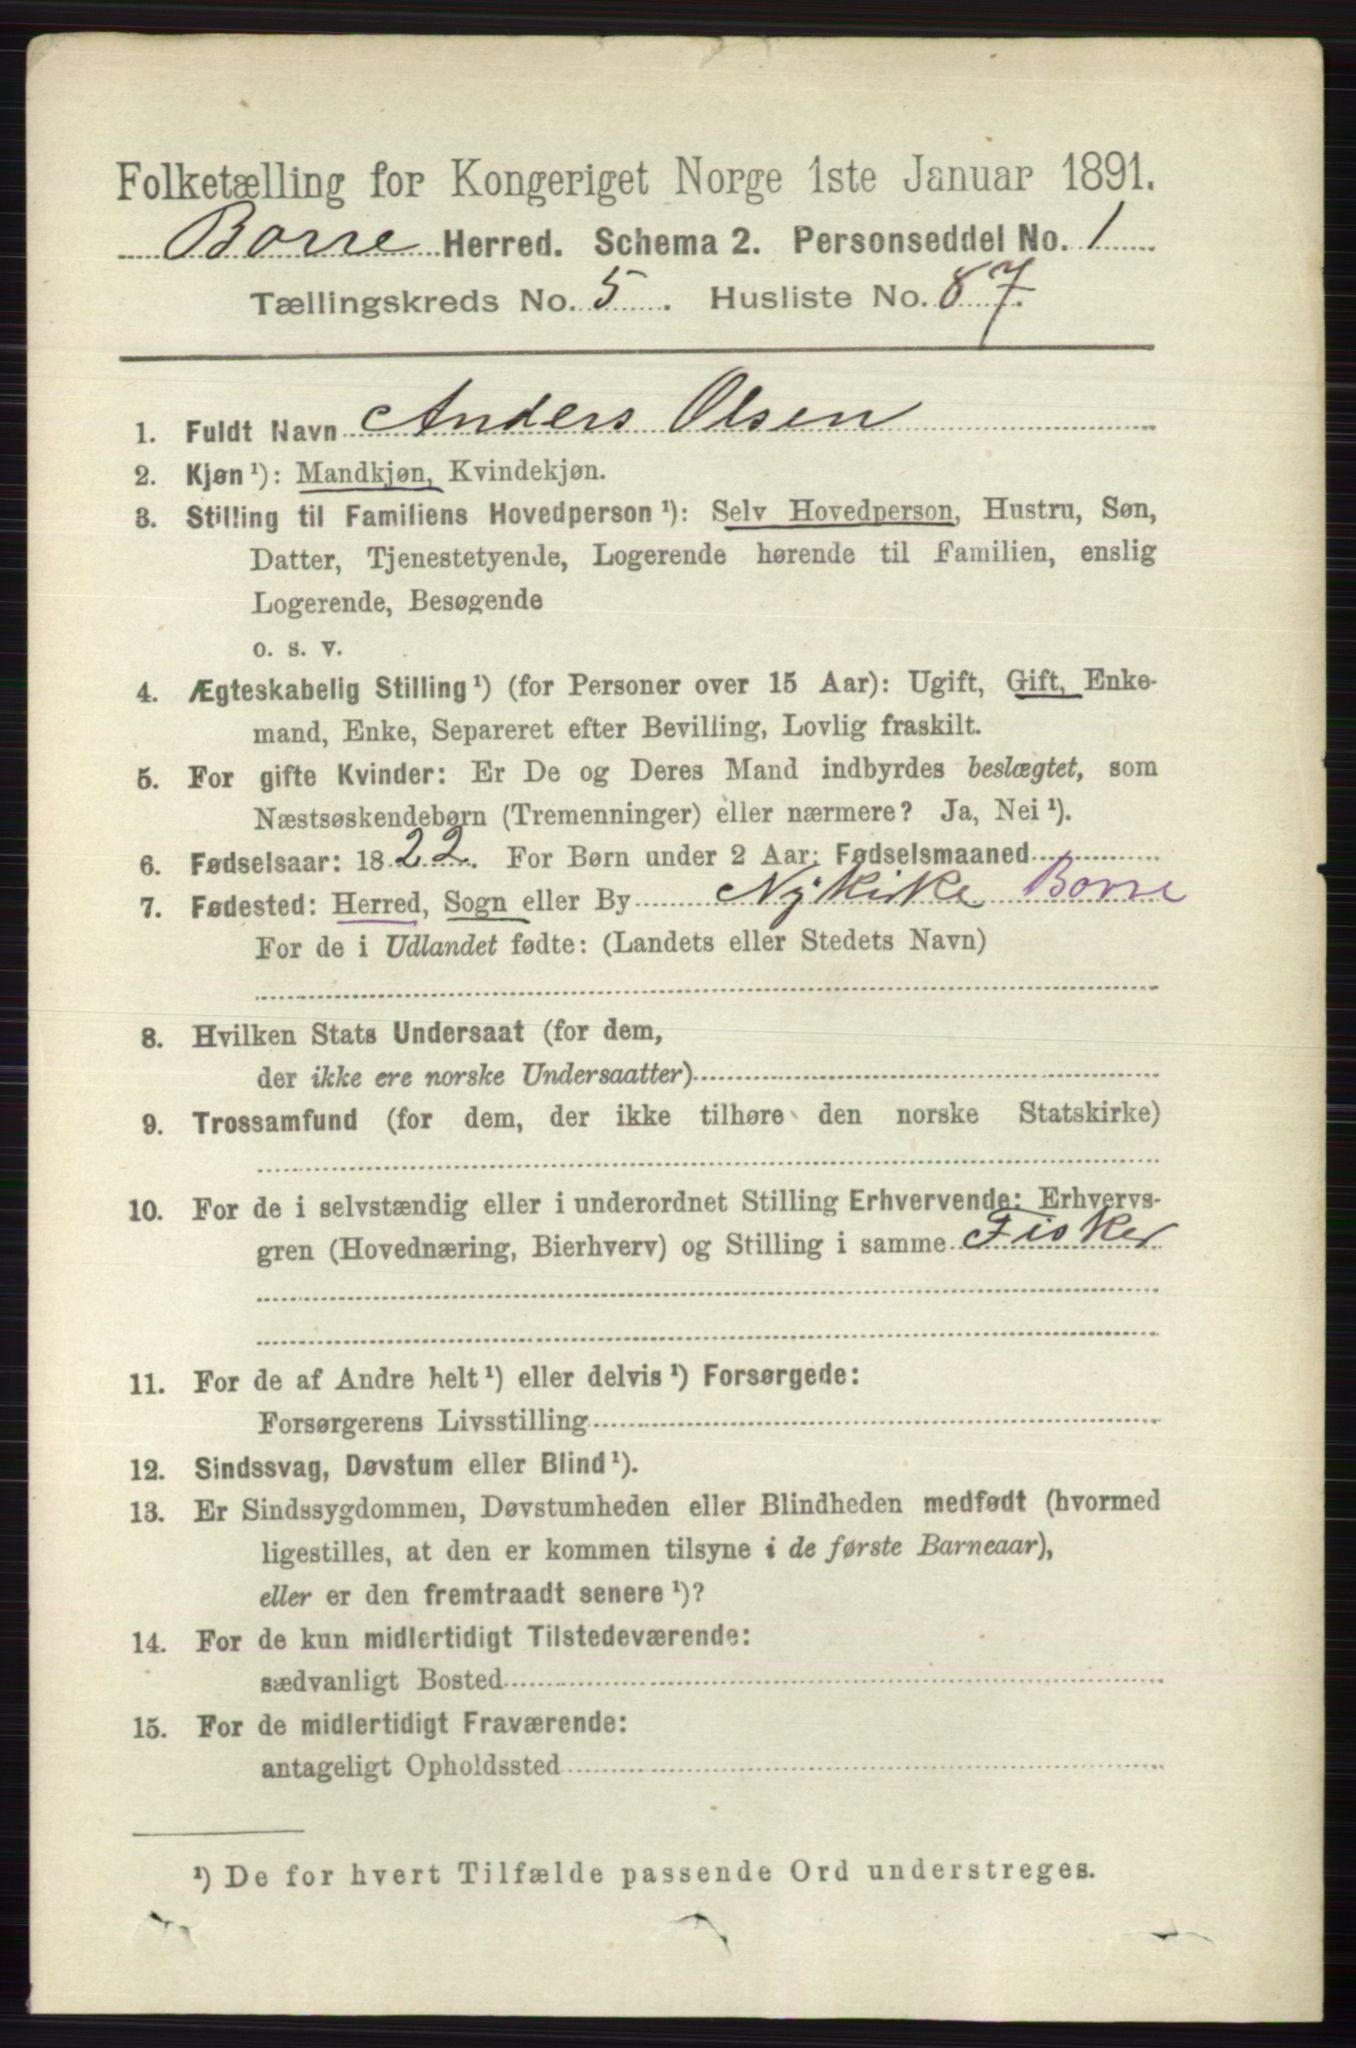 Folketælling for Kongeriget Norge 1ste Januar 1891.
Borre Herred. Schema 2. Personseddel No. 1
Tællingskreds No. 5. Husliste No. 87.
1. Fuldt Navn Anders Olsen
2. Kjøn¹): Mandkjøn, Kvindekjøn.
3. Stilling til Familiens Hovedperson¹): Selv Hovedperson, Hustru, Søn,
Datter, Tjenestetyende, Logerende hørende til Familien, enslig
Logerende, Besøgende
o. s. v.
4. Ægteskabelig Stilling¹) (for Personer over 15 Aar): Ugift, Gift, Enke-
mand, Enke, Separeret efter Bevilling, Lovlig fraskilt.
5. For gifte Kvinder: Er De og Deres Mand indbyrdes beslægtet, som
Næstsøskendebørn (Tremenninger) eller nærmere? Ja, Nei¹).
6. Fødselsaar: 1822. For Børn under 2 Aar: Fødselsmaaned
7. Fødested: Herred, Sogn eller By Nykirke Borre
For de i Udlandet fødte: (Landets eller Stedets Navn)
8. Hvilken Stats Undersaat (for dem,
der ikke ere norske Undersaatter)
9. Trossamfund (for dem, der ikke tilhøre den norske Statskirke)
10. For de i selvstændig eller i underordnet Stilling Erhvervende: Erhvervs-
gren (Hovednæring, Bierhverv) og Stilling i samme Fisker
11. For de af Andre helt¹) eller delvis¹) Forsørgede:
Forsørgerens Livsstilling
12. Sindssvag, Døvstum eller Blind¹).
13. Er Sindssygdommen, Døvstumheden eller Blindheden medfødt (hvormed
ligestilles, at den er kommen tilsyne i de første Barneaar),
eller er den fremtraadt senere¹)?
14. For de kun midlertidigt Tilstedeværende:
sædvanligt Bosted
15. For de midlertidigt Fraværende:
antageligt Opholdssted
¹) De for hvert Tilfælde passende Ord understreges.